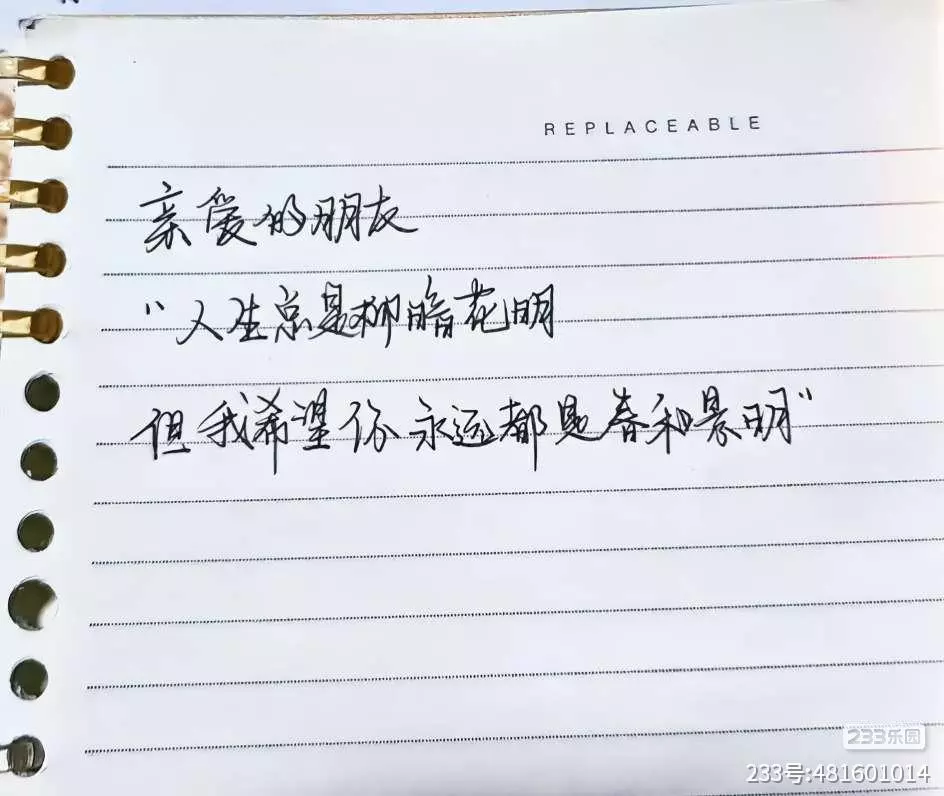 REPLACEABLE
亲爱的朋友
“人生总是柳暗花明
但我希望你永远都是春和景明”
233乐园
233号:481601014